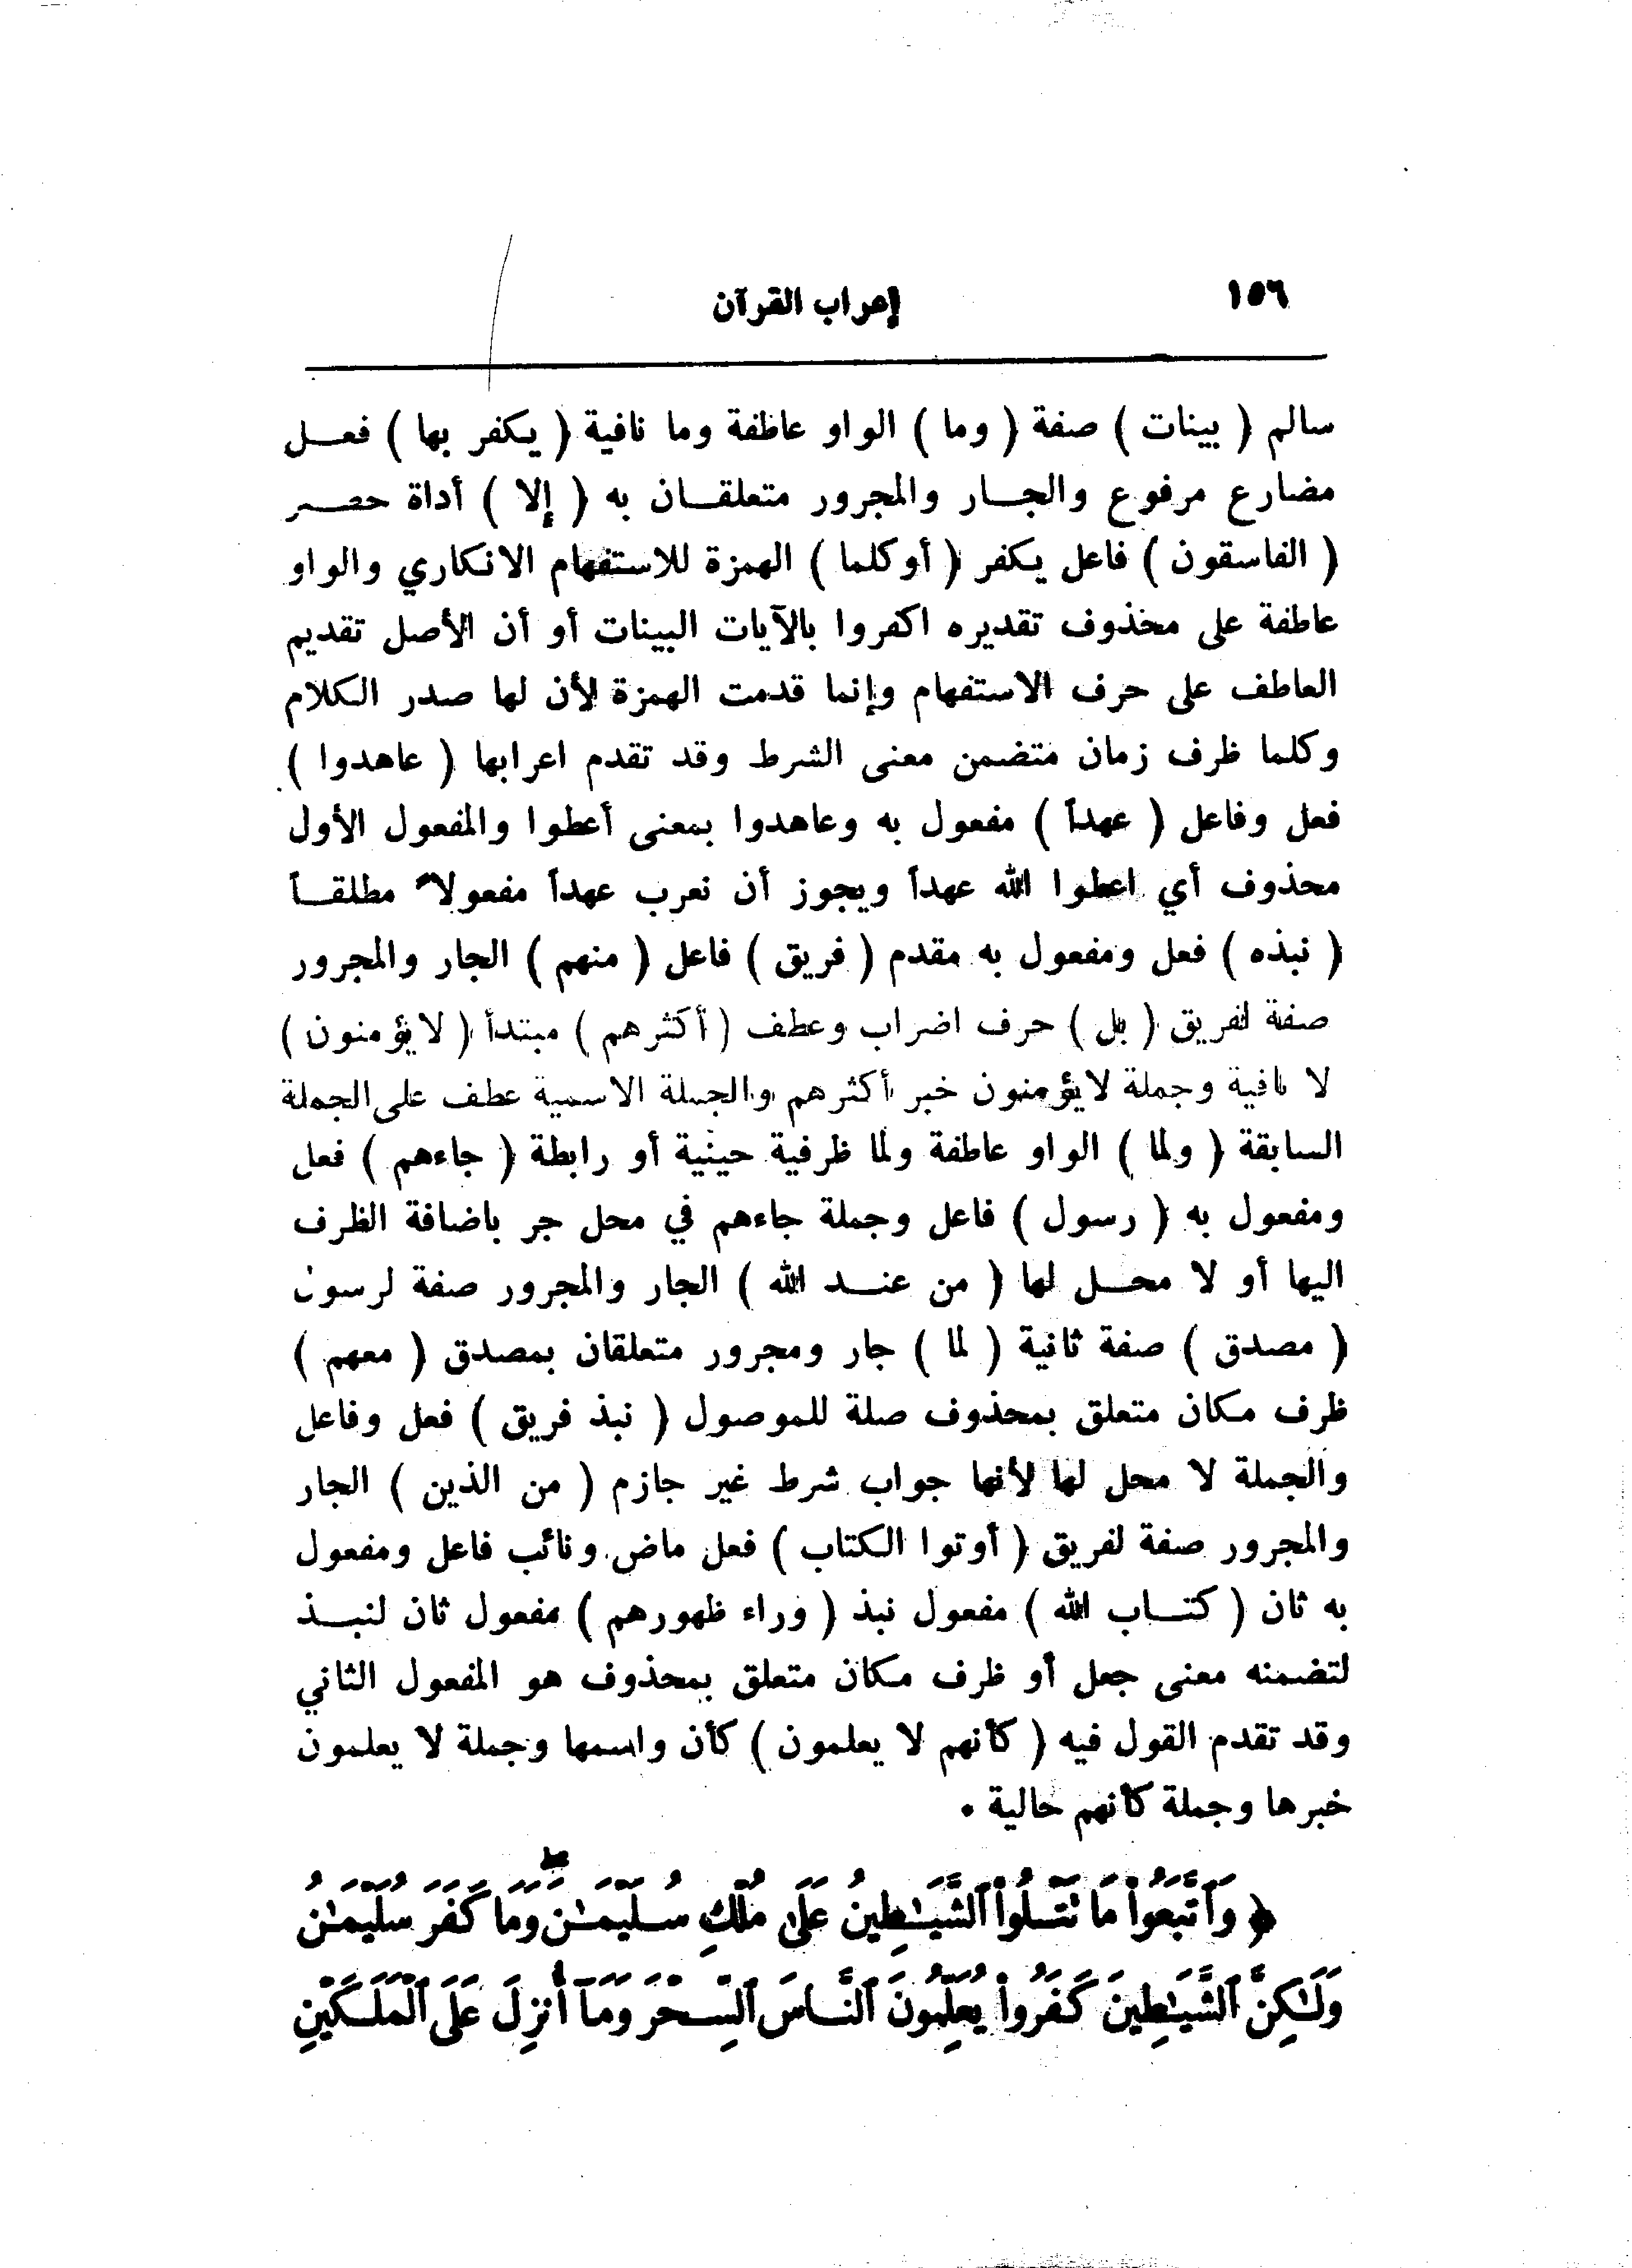 ١٥٦
إعراب القرآن
سالم ( بينات ) صفة ( وما ) الواو عاطفة وما نافية ( يكفر بها ) فعل
مضارع مرفوع والجار والمجرور متعلقان به ( إلا ) أداة حصر
( الفاسقون ) فاعل يكفر ( أوكلما ) الهمزة للاستفهام الانكاري والواو
عاطفة على محذوف تقديره اكفروا بالآيات البينات أو أن الأصل تقديم
العاطف على حرف الاستفهام وإنما قدمت الهمزة لأن لها صدر الكلام
وكلما ظرف زمان متضمن معنى الشرط وقد تقدم اعرابها ( عاهدوا )
فعل وفاعل ( عهداً ) مفعول به وعاهدوا بمعنى أعطوا والمفعول الأول
محذوف أي اعطوا الله عهداً ويجوز أن نعرب عهداً مفعولاً مطلقاً
( نبذه ) فعل ومفعول به مقدم ( فريق ) فاعل ( منهم ) الجار والمجرور
صفة لفريق ( بل ) حرف اضراب وعطف ( أكثرهم ) مبتدأ ( لايؤمنون )
لا نافية وجملة لايؤمنون خبر أكثرهم والجملة الاسمية عطف على الجملة
السابقة ( ولما ) الواو عاطفة ولما ظرفية حينية أو رابطة ( جاءهم ) فعل
ومفعول به ( رسول ) فاعل وجملة جاءهم في محل جر باضافة الظرف
اليها أو لا محل لها ( من عند الله ) الجار والمجرور صفة لرسول
( مصدق ) صفة ثانية ( لما ) جار ومجرور متعلقان بمصدق ( معهم )
ظرف مكان متعلق بمحذوف صلة للموصول ( نبذ فريق ) فعل وفاعل
والجملة لا محل لها لأنها جواب شرط غير جازم ( من الذين ) الجار
والمجرور صفة لفريق ( أوتوا الكتاب ) فعل ماض ونائب فاعل ومفعول
به ثان ( كتاب الله ) مفعول نبذ ( وراء ظهورهم ) مفعول ثان لنبذ
لتضمنه معنى جعل أو ظرف مكان متعلق بمحذوف هو المفعول الثاني
وقد تقدم القول فيه ( كأنهم لا يعلمون ) كأن واسمها وجملة لا يعلمون
خبرها وجملة كأنهم حالية .
﴿ وَٱتَّبَعُوا۟ مَا تَتْلُوا۟ ٱلشَّيَـٰطِينُ عَلَىٰ مُلْكِ سُلَيْمَـٰنَ ۖ وَمَا كَفَرَ سُلَيْمَـٰنُ
وَلَـٰكِنَّ ٱلشَّيَـٰطِينَ كَفَرُوا۟ يُعَلِّمُونَ ٱلنَّاسَ ٱلسِّحْرَ وَمَآ أُنزِلَ عَلَى ٱلْمَلَكَيْنِ